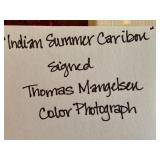 "Indian Summer Caribou"
Signed
Thomas Mangelsen
Color Photograph